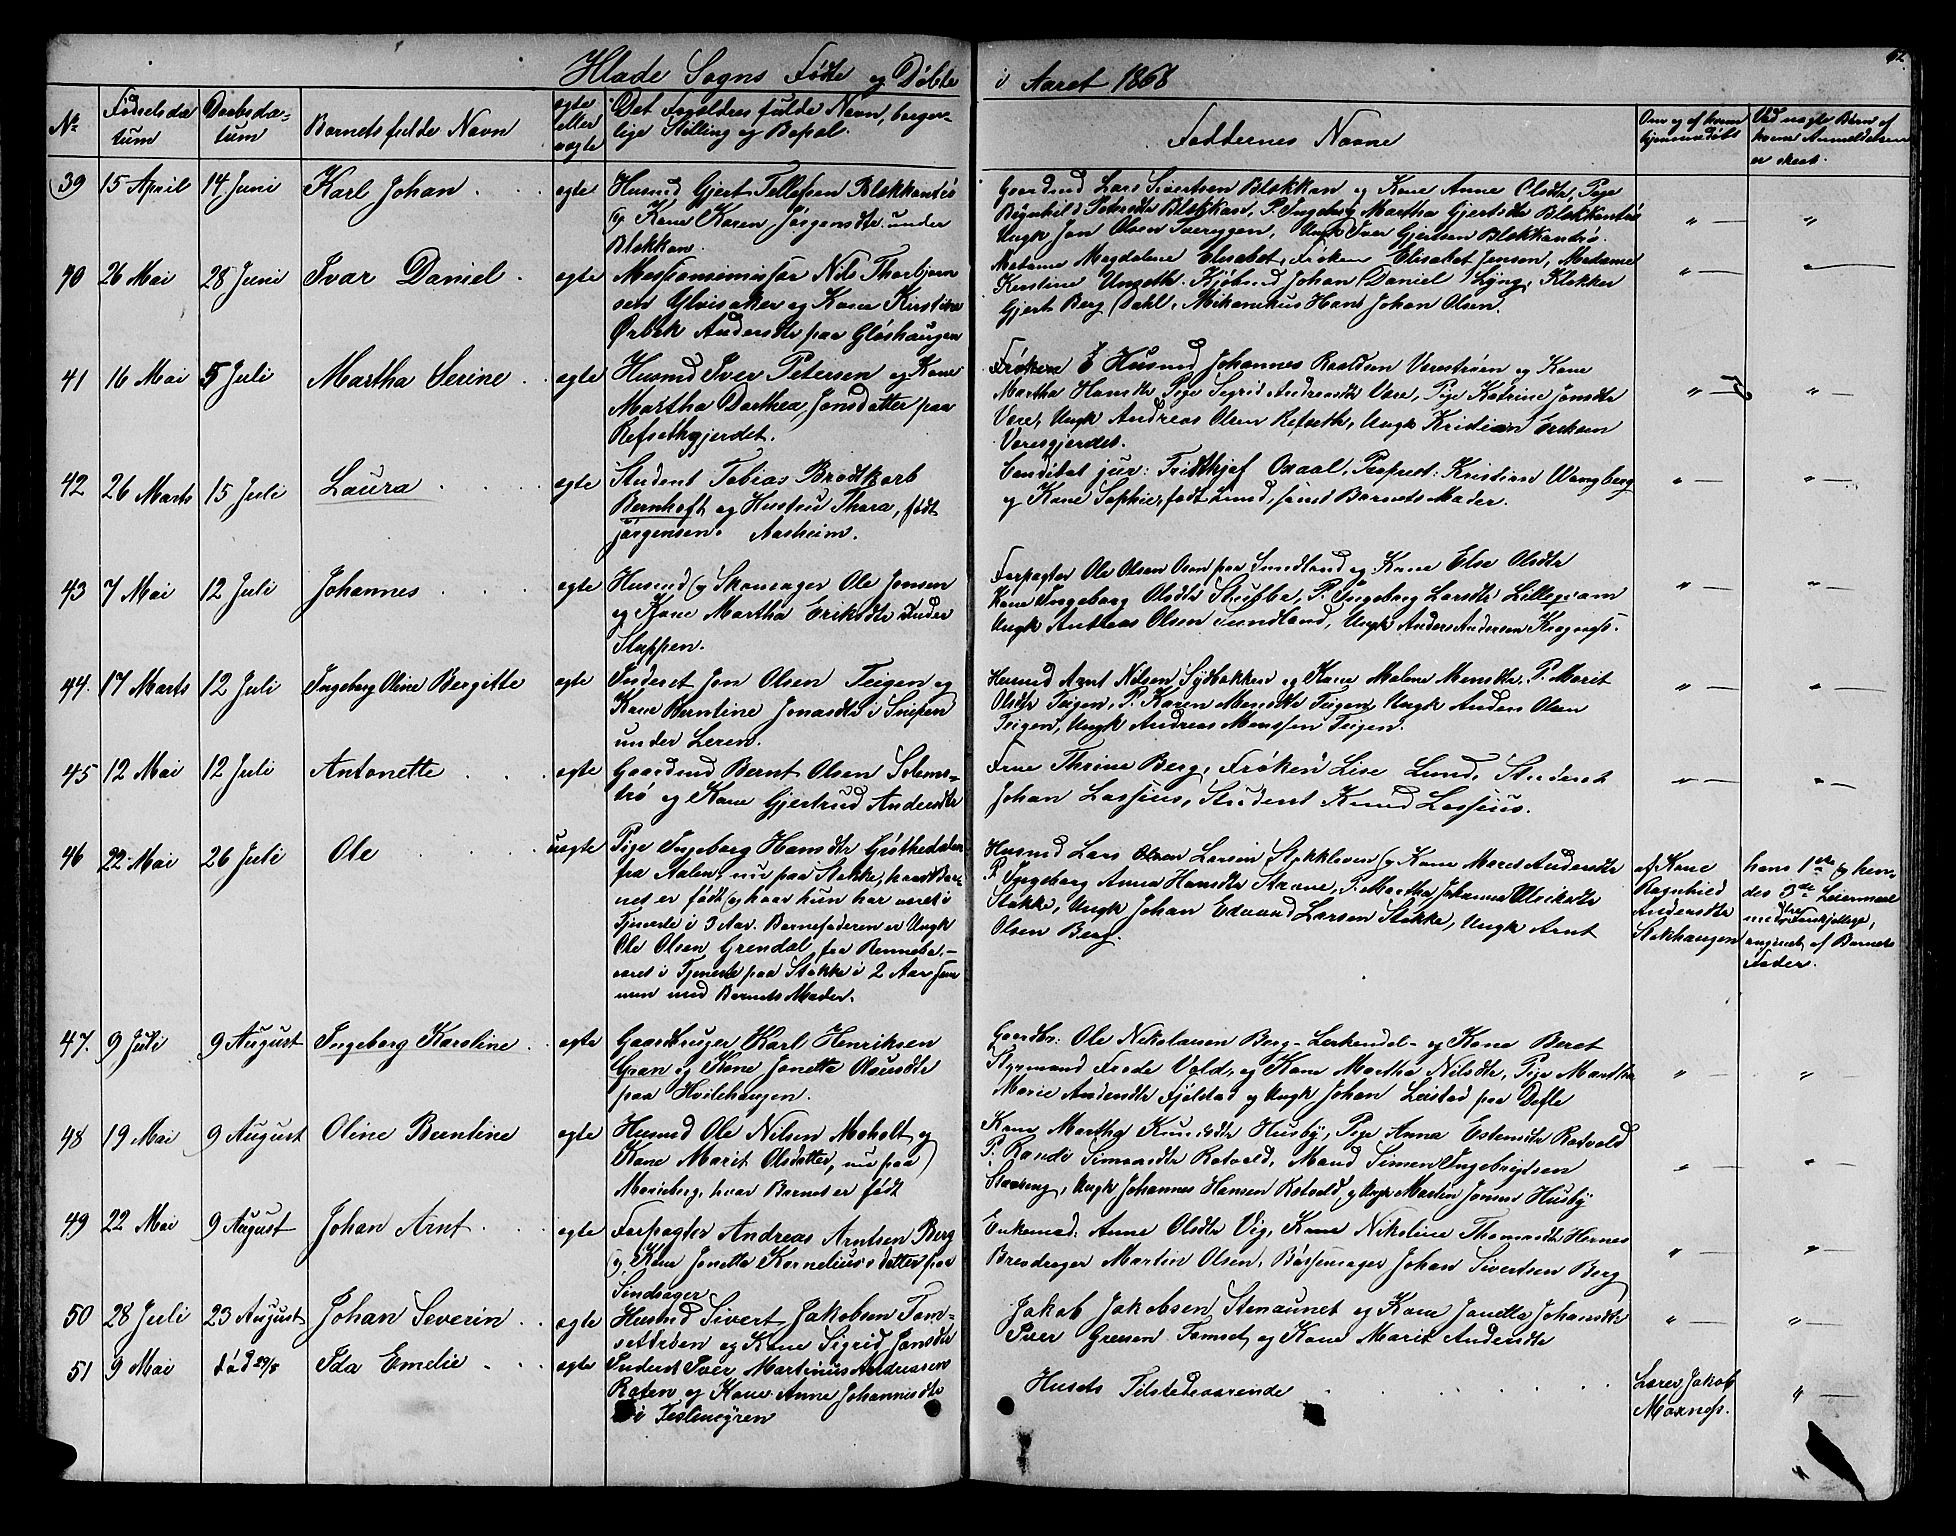 Hlade Sogns Fødte og Døbte i Aaret 1868
62
No
Fødselsda
tum
Daabsda=
tum
Barnets fulde Navn
ægte
eller
uægte
Det Forældres fulde Navn, borger-
lige Stilling og Bopæl.
Faddernes Navne
Om og af hvem
hjemmedøbt
Ved uægte Børn af
hvem Anmeldelsen
er skeet.
39 15 April 14 Juni Karl Johan ægte
Husmd Gjert Tellefsen Blokkantrø
og Kone Karen Jørgensdtr under
Blokkan.
Gaardmd Lars Sivertsen Blokkan og Kone Anne Olsdtr, Pige
Brynhild Petersdtr Blokkan, P. Ingeborg Martha Gjertsdtr Blokkantrø
Ungk Jon Olsen Tvereggen, Ungk Iver Gjertsen Blokkantrø.
" "
40 26 Mai 28 Juni Ivar Daniel ægte
Missionsemissær Nils Thorbjørn
sen Gloisaker og Kone Kirstine
Ørbek Andersdtr paa Gløshaugen
Madame Magdalene Elisabet, Frøken Elisabet Jensen, Madame
Kirstine Ungeth. Kjøbmd Johan Daniel Lyng, Klokker
Gjert Berg Dahl, Mekanikus Hans Johan Olsen.
" "
41 16 Mai 5 Juli Martha Serine ægte
Husmd Iver Petersen og Kone
Martha Dorthea Jonsdatter paa
Refsethgjerdet.
Husmd Johannes Roaldsen Verestrøen og Kone
Martha Hansdtr Pige Sigrid Andreasdtr Vere, Pige Katrine Jonsdtr
Vere, Ungk Andreas Olsen Refseth, Ungk Kristian Eriksen
Veresgjerdet.
" "
42 26 Marts 15 Juli Laura ægte
Student Tobias Brodtkorb
Bernhoft og Hustru Thora, født
Jørgensen. Aasheim.
Candidat jur: Fridthjof Oxaal, Proprset: Kristian Wangberg
og Kone Sophie, født Lund, samt Barnets Moder.
" "
43 7 Mai 12 Juli Johannes ægte
Husmd og Skomager Ole Jonsen
og Kone Martha Eriksdtr under
Stuppen.
Forpagter Ole Olsen Oen paa Sundland og Kone Else Olsdtr
Kone Ingeborg Olsdtr Stubbe, P. Ingeborg Larsdtr Lillegram
Ungk Andreas Olsen Sundland, Ungk Anders Andersen Kragnæs.
" "
44. 17 Marts 12 Juli Ingeborg Oline Bergitte ægte
Inderst Jon Olsen Teigen og
Kone Berntine Jonasdtr i Snipen
under Leren.
Husmd Arnt Nilsen Sydbakken og Kone Malene Monsdtr. P. Marit
Olsdtr Teigen, P. Karen Monsdtr Teigen, Ungk Anders Olsen
Teigen, Ungk Andreas Monssen Teigen.
" "
45 12 Mai 12 Juli Antonette ægte
Gaardmd Bernt Olsen Solems-
trø og Kone Gjertrud Andersdtr
Frue Thrine Berg, Frøken Lise Lund, Student
Johan Lassius, Student Knud Lassius.
" "
46 22 Mai 26 Juli Ole uægte
Pige Ingeborg Hansdtr Gjøthedalen
fra Aalen, nu paa Stokke, hvor Bar-
net er født og hvor hun har været i
Tjeneste i 3 Aar. Barnefaderen er Ungk
Ole Olsen Grendal fra Rennebo,
været i Tjeneste paa Stokke i 2 Aar sam
men med Barnets Moder.
Husmd Lars Larsen Stokkleiven og Kone Marit Andersdtr
P. Ingeborg Anna Hansdtr Strøne, P. Martha Johanna Ulriksdtr
Stokke, Ungk Johan Edvard Larsen Stokke, Ungk Arnt
Olsen Berg.
af Kone
Ragnhild
Andersdtr
Stokhaugen
hans 1ste og hen-
des 3de Leiermaal
med forskjellige,
angivet af Barnets
Fader.
47. 9 Juli 9 August Ingeborg Karoline ægte
Gaardbruger Karl Henriksen
Gran og Kone Janetta Olausdtr
paa Hvilehaugen.
Gaardbr: Ole Nikolausen Berg - Lerkendal - og Kone Beret
Styrmand Frode Vold, og Kone Martha Nilsdtr, Pige Martha
Marie Andersdtr Fjølstad og Ungk Johan Leistad paa Defle
" "
48 19 Mai 9 August Oline Berntine ægte
Husmd Ole Nilsen Moholt og
Kone Marit Olsdatter, nu paa
Marieborg, hvor Barnet er født
Kone Martha Knudsdtr Husby, Pige Anna Estensdtr Rotvold
P. Randi Simonsdtr Rotvold, Mand Simen Ingebrigtsen
Stavring, Ungk Johannes Hansen Rotvold, og Ungk Martin Jonsen Husby
" "
49 22 Mai 9 August Johan Arnt ægte
Forpagter Andreas Arntsen Berg
og Kone Janetta Korneliusdatter paa
Sindsager
Enkemad: Anne Olsdtr Vig, Kone Nikoline Thomasdtr Hernes
Brødrager Martin Olsen, Bøssemager Johan Sivertsen Berg
" "
50 28 Juli 23 August Johan Severin ægte
Husmd Sivert Jakobsen Tom-
setteien og Kone Sigrid Jonsdtr
Jakob Jakobsen Stenaunet og Kone Janetta Johansdtr
Iver Geersen Tomset, og Kone Marit Andersdtr
" "
51 9 Mai død 29/5 Ida Emelie ægte
Inderst Iver Martinus Andreassen
Roten og Kone Anne Johannesdtr
i Teslimyren
Husets Tilstedeværende
Lærer Jakob
Moxness.
"